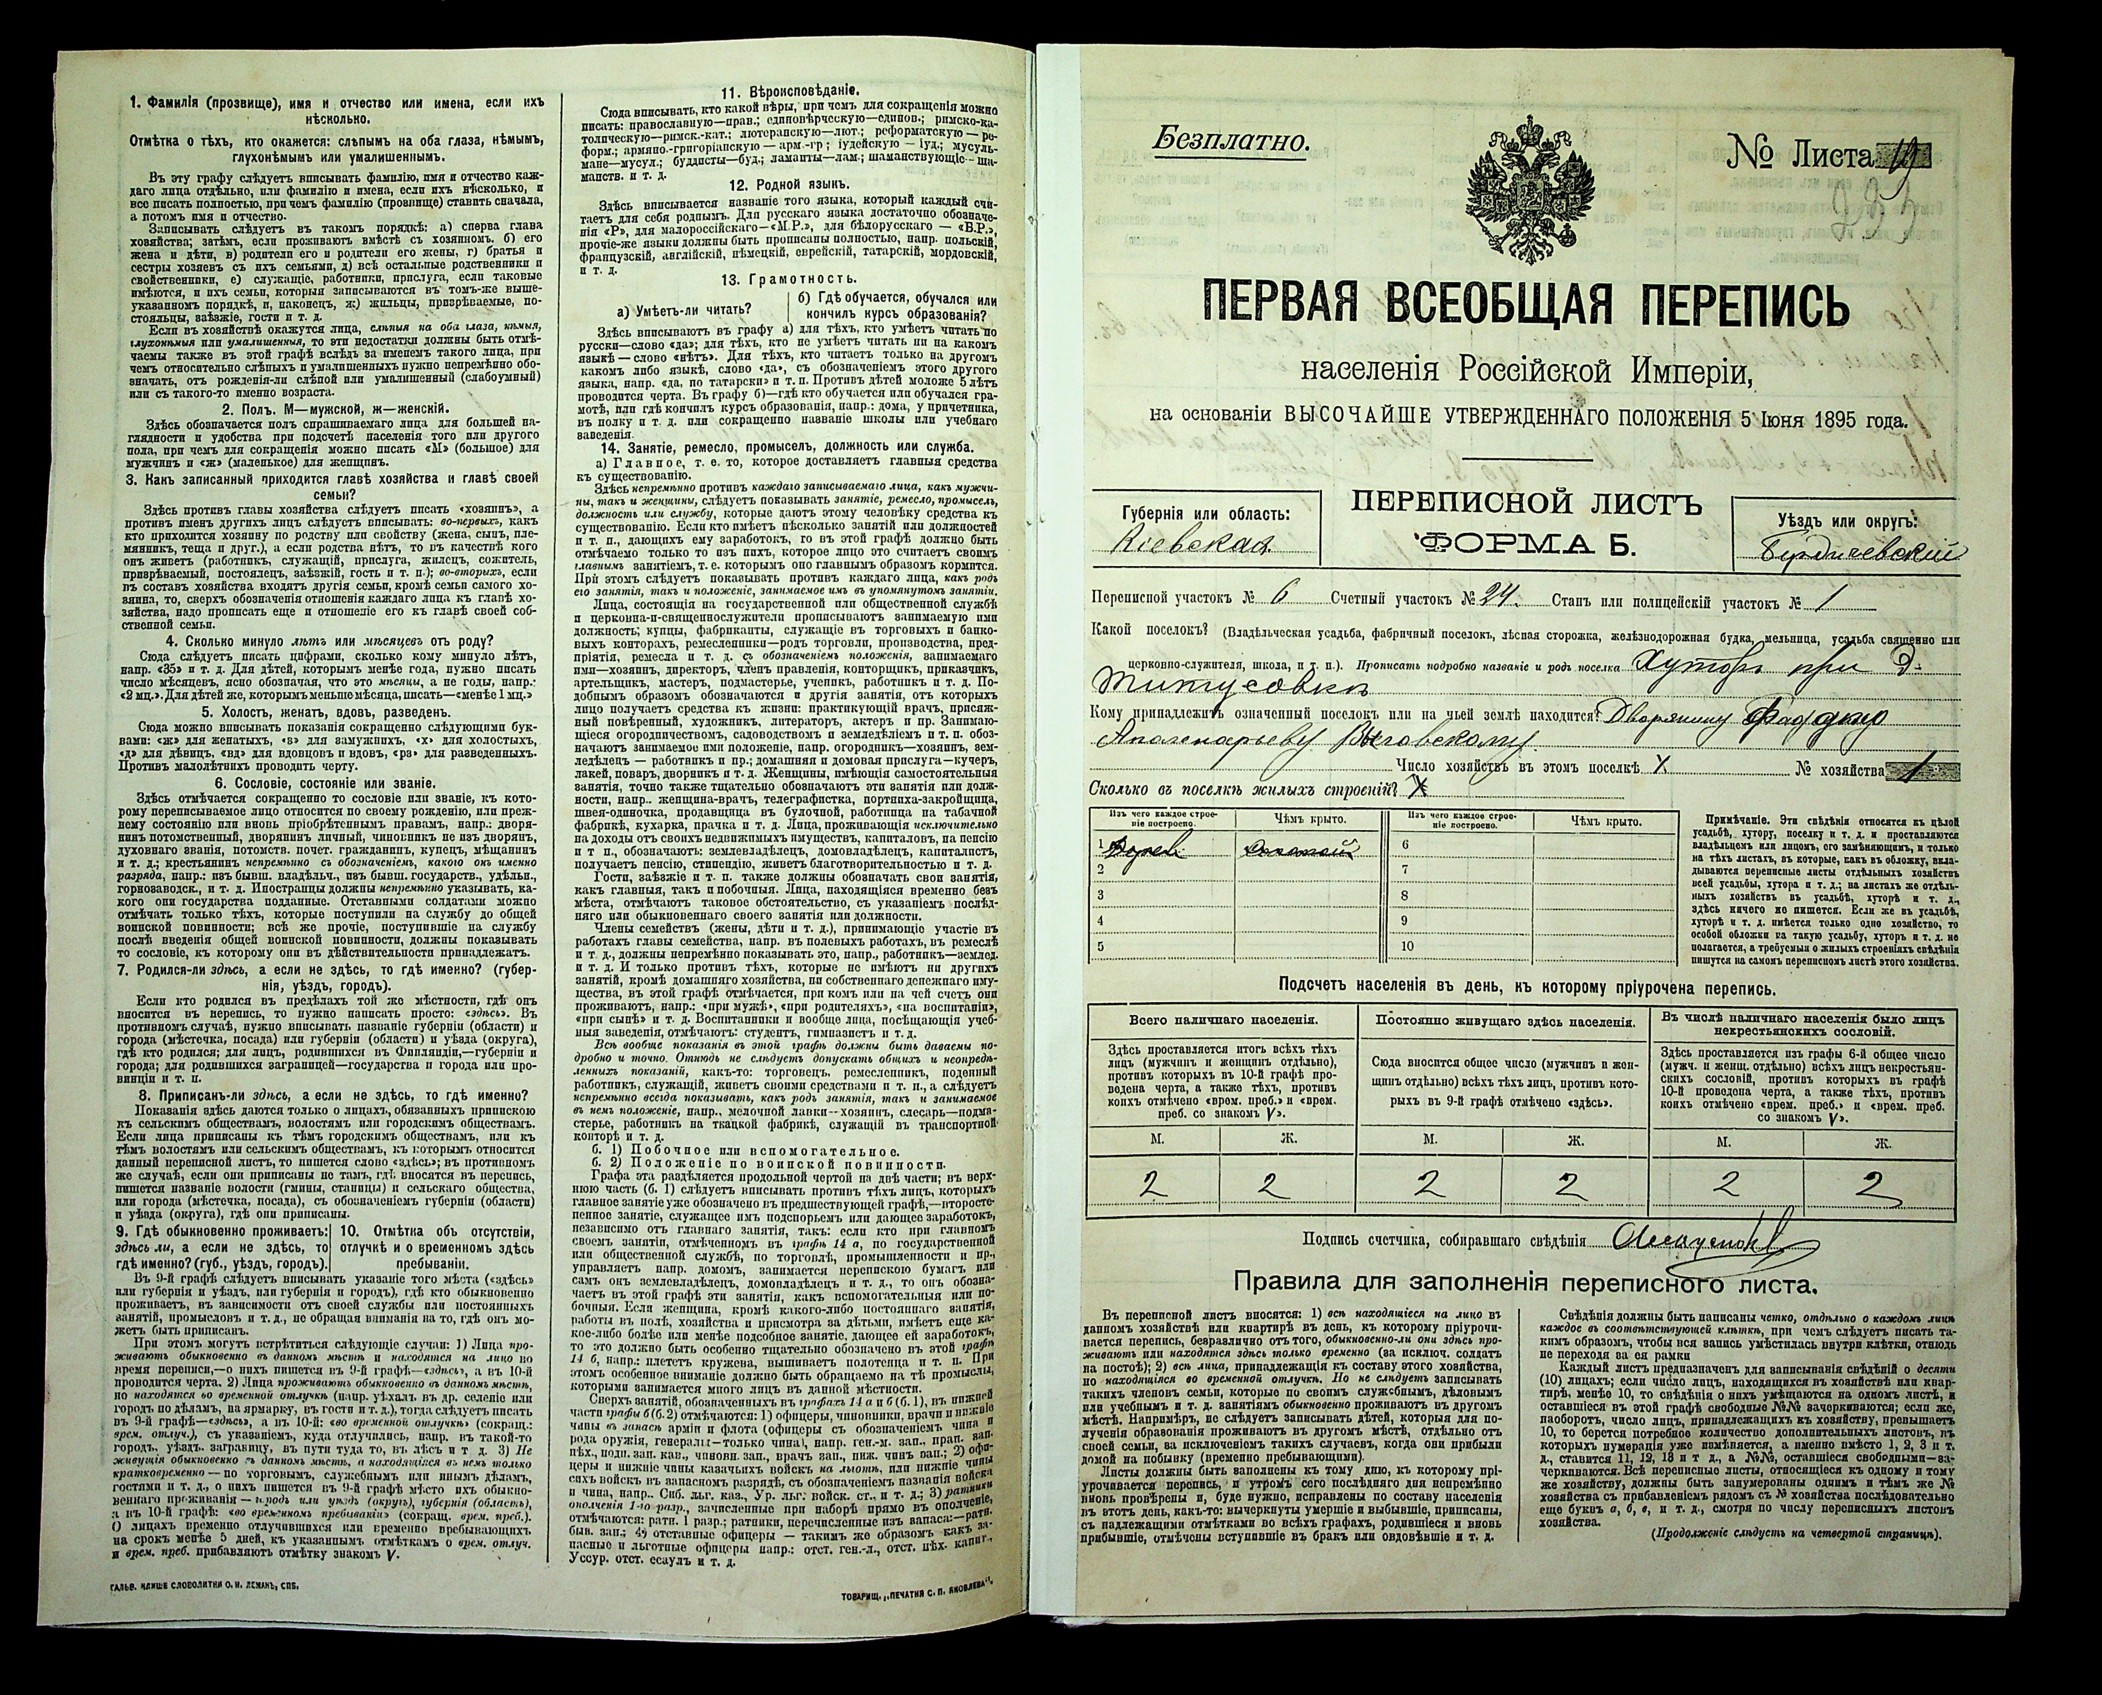 1. Фамилія (прозвище), имя и отчество или имена, если ихъ
нѣсколько.
Отмѣтка о тѣхъ, кто окажется: слѣпымъ на оба глаза, нѣмымъ,
глухонѣмымъ или умалишеннымъ.
Въ эту графу слѣдуетъ вписывать фамилію, имя и отчество каж-
даго лица отдѣльно, или фамилію и имена, если ихъ нѣсколько, и
все писать полностью, при чемъ фамилію (прозвище) ставить сначала,
а потомъ имя и отчество.
Записывать слѣдуетъ въ такомъ порядкѣ: а) сперва глава
хозяйства; затѣмъ, если проживаютъ вмѣстѣ съ хозяиномъ. б) его
жена и дѣти, в) родители его и родители его жены, г) братья и
сестры хозяевъ съ ихъ семьями, д) всѣ остальные родственники и
свойственники, е) служащіе, работники, прислуга, если таковые
имѣются, и ихъ семьи, которыя записываются въ томъ-же выше-
указанномъ порядкѣ, и, наконецъ, ж) жильцы, призрѣваемые, по-
стояльцы, заѣзжіе, гости и т. п.
Если въ хозяйствѣ окажутся лица, слѣпыя на оба глаза, нѣмыя,
глухонѣмыя или умалишенныя, то эти недостатки должны быть отмѣ-
чаемы также въ этой графѣ вслѣдъ за именемъ такого лица, при
чемъ относительно слѣпыхъ и умалишенныхъ нужно непремѣнно обо-
значать, отъ рожденія-ли слѣпой или умалишенный (слабоумный)
или съ такого-то именно возраста.
2. Полъ. М—мужской, ж—женскій.
Здѣсь обозначается полъ спрашиваемаго лица для большей на-
глядности и удобства при подсчетѣ населенія того или другого
пола, при чемъ для сокращенія можно писать «М» (большое) для
мужчинъ и «ж» (маленькое) для женщинъ.
3. Какъ записанный приходится главѣ хозяйства и главѣ своей
семьи?
Здѣсь противъ главы хозяйства слѣдуетъ писать «хозяинъ», а
противъ именъ другихъ лицъ слѣдуетъ вписывать: во-первыхъ, какъ
кто приходится хозяину по родству или свойству (жена, сынъ, пле-
мянникъ, теща и друг.), а если родства нѣтъ, то въ качествѣ кого
онъ живетъ (работникъ, служащій, прислуга, жилецъ, сожитель,
призрѣваемый, постоялецъ, заѣзжій, гость и т. п.); во-вторыхъ, если
въ составъ хозяйства входятъ другія семьи, кромѣ семьи самого хо-
зяина, то, сверхъ обозначенія отношенія каждаго лица къ главѣ хо-
зяйства, надо прописать еще и отношеніе его къ главѣ своей соб-
ственной семьи.
4. Сколько минуло лѣтъ или мѣсяцевъ отъ роду?
Сюда слѣдуетъ писать цифрами, сколько кому минуло лѣтъ,
напр. «35» и т. д. Для дѣтей, которымъ менѣе года, нужно писать
число мѣсяцевъ, ясно обозначая, что это мѣсяцы, а не годы, напр.:
«2 мц.». Для дѣтей же, которымъ меньше мѣсяца, писать—«менѣе 1 мц.»
5. Холостъ, женатъ, вдовъ, разведенъ.
Сюда можно вписывать показанія сокращенно слѣдующими бук-
вами: «ж» для женатыхъ, «з» для замужнихъ, «х» для холостыхъ,
«д» для дѣвицъ, «вд» для вдовцовъ и вдовъ, «рз» для разведенныхъ.
Противъ малолѣтнихъ проводить черту.
6. Сословіе, состояніе или званіе.
Здѣсь отмѣчается сокращенно то сословіе или званіе, къ кото-
рому переписываемое лицо относится по своему рожденію, или преж-
нему состоянію или вновь пріобрѣтеннымъ правамъ, напр.: дворя-
нинъ потомственный, дворянинъ личный, чиновникъ не изъ дворянъ,
духовнаго званія, потомств. почет. гражданинъ, купецъ, мѣщанинъ
и т. д.; крестьянинъ непремѣнно съ обозначеніемъ, какого онъ именно
разряда, напр.: изъ бывш. владѣльч., изъ бывш. государств., удѣльн.,
горнозаводск., и т. д. Иностранцы должны непремѣнно указывать, ка-
кого они государства подданные. Отставными солдатами можно
отмѣчать только тѣхъ, которые поступили на службу до общей
воинской повинности; всѣ же прочіе, поступившіе на службу
послѣ введенія общей воинской повинности, должны показывать
то сословіе, къ которому они въ дѣйствительности принадлежатъ.
7. Родился-ли здѣсь, а если не здѣсь, то гдѣ именно? (губер-
нія, уѣздъ, городъ).
Если кто родился въ предѣлахъ той же мѣстности, гдѣ онъ
вносится въ перепись, то нужно написать просто: «здѣсь». Въ
противномъ случаѣ, нужно вписывать названіе губерніи (области) и
города (мѣстечка, посада) или губерніи (области) и уѣзда (округа),
гдѣ кто родился; для лицъ, родившихся въ Финляндіи,—губерніи и
города; для родившихся заграницей—государства и города или про-
винціи и т. п.
8. Приписанъ-ли здѣсь, а если не здѣсь, то гдѣ именно?
Показанія здѣсь даются только о лицахъ, обязанныхъ припискою
къ сельскимъ обществамъ, волостямъ или городскимъ обществамъ.
Если лица приписаны къ тѣмъ городскимъ обществамъ, или къ
тѣмъ волостямъ или сельскимъ обществамъ, къ которымъ относится
данный переписной листъ, то пишется слово «здѣсь»; въ противномъ
же случаѣ, если они приписаны не тамъ, гдѣ вносятся въ перепись,
пишется названіе волости (гмины, станицы) и сельскаго общества,
или города (мѣстечка, посада), съ обозначеніемъ губерніи (области)
и уѣзда (округа), гдѣ они приписаны.
9. Гдѣ обыкновенно проживаетъ:
здѣсь ли, а если не здѣсь, то
гдѣ именно? (губ., уѣздъ, городъ).
10. Отмѣтка объ отсутствіи,
отлучкѣ и о временномъ здѣсь
пребываніи.
Въ 9-й графѣ слѣдуетъ вписывать указаніе того мѣста («здѣсь»
или губернія и уѣздъ, или губернія и городъ), гдѣ кто обыкновенно
проживаетъ, въ зависимости отъ своей службы или постоянныхъ
занятій, промысловъ и т. д., не обращая вниманія на то, гдѣ онъ мо-
жетъ быть приписанъ.
При этомъ могутъ встрѣтиться слѣдующіе случаи: 1) Лица про-
живаютъ обыкновенно въ данномъ мѣстѣ и находятся на лицо во
время переписи,—о нихъ пишется въ 9-й графѣ—«здѣсь», а въ 10-й
проводится черта. 2) Лица проживаютъ обыкновенно въ данномъ мѣстѣ,
но находятся во временной отлучкѣ (напр. уѣхалъ въ др. селеніе или
городъ по дѣламъ, на ярмарку, въ гости и т. д.), тогда слѣдуетъ писать
въ 9-й графѣ—«здѣсь», а въ 10-й: «во временной отлучкѣ» (сокращ.:
врем. отлуч.), съ указаніемъ, куда отлучились, напр. въ такой-то
городъ, уѣздъ, заграницу, въ пути туда то, въ лѣсъ и т д. 3) Не
живущія обыкновенно въ данномъ мѣстѣ, а находящіяся въ немъ только
кратковременно—по торговымъ, служебнымъ или инымъ дѣламъ,
гостями и т. д., о нихъ пишется въ 9-й графѣ мѣсто ихъ обыкно-
веннаго проживанія—городъ или уѣздъ (округъ), губернія (область),
а въ 10-й графѣ: «во временномъ пребываніи» (сокращ. врем. преб.).
О лицахъ временно отлучившихся или временно пребывающихъ
на срокъ менѣе 5 дней, къ указаннымъ отмѣткамъ о врем. отлуч.
и врем. преб. прибавляютъ отмѣтку знакомъ V.
ГАЛЬВ. КЛИШЕ СЛОВОЛИТНИ О. И. ЛЕМАНЪ, СПБ.
11. Вѣроисповѣданіе.
Сюда вписывать, кто какой вѣры, при чемъ для сокращенія можно
писать: православную—прав.; единовѣрческую—единов.; римско-ка-
толическую—римск.-кат.; лютеранскую—лют.; реформатскую—ре-
форм.; армяно-григоріанскую—арм.-гр; іудейскую—іуд.; мусуль-
мане—мусул.; буддисты—буд.; ламаиты—лам.; шаманствующіе—ша-
манств. и т. д.
12. Родной языкъ.
Здѣсь вписывается названіе того языка, который каждый счи-
таетъ для себя роднымъ. Для русскаго языка достаточно обозначе-
нія «Р», для малороссійскаго—«М.Р.», для бѣлорусскаго—«Б.Р.»,
прочіе-же языки должны быть прописаны полностью, напр. польскій,
французскій, англійскій, нѣмецкій, еврейскій, татарскій, мордовскій,
и т. д.
13. Грамотность.
а) Умѣетъ-ли читать?
б) Гдѣ обучается, обучался или
кончилъ курсъ образованія?
Здѣсь вписываютъ въ графу а) для тѣхъ, кто умѣетъ читать по
русски—слово «да»; для тѣхъ, кто не умѣетъ читать ни на какомъ
языкѣ—слово «нѣтъ». Для тѣхъ, кто читаетъ только на другомъ
какомъ либо языкѣ, слово «да», съ обозначеніемъ этого другого
языка, напр. «да, по татарски» и т. п. Противъ дѣтей моложе 5 лѣтъ
проводится черта. Въ графу б)—гдѣ кто обучается или обучался гра-
мотѣ, или гдѣ кончилъ курсъ образованія, напр.: дома, у причетника,
въ полку и т. д. или сокращенно названіе школы или учебнаго
заведенія.
14. Занятіе, ремесло, промыселъ, должность или служба.
а) Главное, т. е. то, которое доставляетъ главныя средства
къ существованію.
Здѣсь непремѣнно противъ каждаго записываемаго лица, какъ мужчи-
ны, такъ и женщины, слѣдуетъ показывать занятіе, ремесло, промыселъ,
должность или службу, которые даютъ этому человѣку средства къ
существованію. Если кто имѣетъ нѣсколько занятій или должностей
и т. п., дающихъ ему заработокъ, то въ этой графѣ должно быть
отмѣчаемо только то изъ нихъ, которое лицо это считаетъ своимъ
главнымъ занятіемъ, т. е. которымъ оно главнымъ образомъ кормится.
При этомъ слѣдуетъ показывать противъ каждаго лица, какъ родъ
его занятія, такъ и положеніе, занимаемое имъ въ упомянутомъ занятіи.
Лица, состоящія на государственной или общественной службѣ
и церковно-и-священнослужители прописываютъ занимаемую ими
должность; купцы, фабриканты, служащіе въ торговыхъ и банко-
выхъ конторахъ, ремесленники—родъ торговли, производства, пред-
пріятія, ремесла и т. д. съ обозначеніемъ положенія, занимаемаго
ими—хозяинъ, директоръ, членъ правленія, конторщикъ, прикащикъ,
артельщикъ, мастеръ, подмастерье, ученикъ, работникъ и т. д. По-
добнымъ образомъ обозначаются и другія занятія, отъ которыхъ
лицо получаетъ средства къ жизни: практикующій врачъ, присяж-
ный повѣренный, художникъ, литераторъ, актеръ и пр. Занимаю-
щіеся огородничествомъ, садоводствомъ и земледѣліемъ и т. п. обо-
значаютъ занимаемое ими положеніе, напр. огородникъ—хозяинъ, зем-
ледѣлецъ—работникъ и пр.; домашняя и домовая прислуга—кучеръ,
лакей, поваръ, дворникъ и т. д. Женщины, имѣющія самостоятельныя
занятія, точно также тщательно обозначаютъ эти занятія или долж-
ности, напр.. женщина-врачъ, телеграфистка, портниха-закройщица,
швея-одиночка, продавщица въ булочной, работница на табачной
фабрикѣ, кухарка, прачка и т. д. Лица, проживающія исключительно
на доходы отъ своихъ недвижимыхъ имуществъ, капиталовъ, на пенсію
и т п., обозначаютъ: землевладѣлецъ, домовладѣлецъ, капиталистъ,
получаетъ пенсію, стипендію, живетъ благотворительностью и т. д.
Гости, заѣзжіе и т. п. также должны обозначать свои занятія,
какъ главныя, такъ и побочныя. Лица, находящіяся временно безъ
мѣста, отмѣчаютъ таковое обстоятельство, съ указаніемъ послѣд-
няго или обыкновеннаго своего занятія или должности.
Члены семействъ (жены, дѣти и т. д.), принимающіе участіе въ
работахъ главы семейства, напр. въ полевыхъ работахъ, въ ремеслѣ
и т. д., должны непремѣнно показывать это, напр., работникъ—землед.
и т. д. И только противъ тѣхъ, которые не имѣютъ ни другихъ
занятій, кромѣ домашняго хозяйства, ни собственнаго денежнаго иму-
щества, въ этой графѣ отмѣчается, при комъ или на чей счетъ они
проживаютъ, напр.: «при мужѣ», «при родителяхъ», «на воспитаніи»,
«при сынѣ» и т. д. Воспитанники и вообще лица, посѣщающія учеб-
ныя заведенія, отмѣчаютъ: студентъ, гимназистъ и т. д.
Всѣ вообще показанія въ этой графѣ должны быть даваемы по-
дробно и точно. Отнюдь не слѣдуетъ допускать общихъ и неопредѣ-
ленныхъ показаній, какъ-то: торговецъ, ремесленникъ, поденный
работникъ, служащій, живетъ своими средствами и т. п., а слѣдуетъ
непремѣнно всегда показывать, какъ родъ занятія, такъ и занимаемое
въ немъ положеніе, напр., мелочной лавки—хозяинъ, слесарь—подма-
стерье, работникъ на ткацкой фабрикѣ, служащій въ транспортной
конторѣ и т. д.
б. 1) Побочное или вспомогательное.
б. 2) Положеніе по воинской повинности.
Графа эта раздѣляется продольной чертой на двѣ части; въ верх-
нюю часть (б. 1) слѣдуетъ вписывать противъ тѣхъ лицъ, которыхъ
главное занятіе уже обозначено въ предшествующей графѣ,—второсте-
пенное занятіе, служащее имъ подспорьемъ или дающее заработокъ,
независимо отъ главнаго занятія, такъ: если кто при главномъ
своемъ занятіи, отмѣченномъ въ графѣ 14 а, по государственной
или общественной службѣ, по торговлѣ, промышленности и пр.,
управляетъ напр. домомъ, занимается перепискою бумагъ или
самъ онъ землевладѣлецъ, домовладѣлецъ и т. д., то онъ обозна-
чаетъ въ этой графѣ эти занятія, какъ вспомогательныя или по-
бочныя. Если женщина, кромѣ какого-либо постояннаго занятія,
работы въ полѣ, хозяйства и присмотра за дѣтьми, имѣетъ еще ка-
кое-либо болѣе или менѣе подсобное занятіе, дающее ей заработокъ,
то это должно быть особенно тщательно обозначено въ этой графѣ
14 б, напр.: плететъ кружева, вышиваетъ полотенца и т. п. При
этомъ особенное вниманіе должно быть обращаемо на тѣ промыслы,
которыми занимается много лицъ въ данной мѣстности.
Сверхъ занятій, обозначенныхъ въ графахъ 14 а и б (б. 1), въ нижней
части графы б (б. 2) отмѣчаются: 1) офицеры, чиновники, врачи и нижніе
чины въ запасѣ арміи и флота (офицеры съ обозначеніемъ чина и
рода оружія, генералы—только чина), напр. ген.-м. зап., прап. зап.
пѣх., подп. зап. кав., чиновн. зап., врачъ зап., ниж. чинъ зап.; 2) офи-
церы и нижніе чины казачьихъ войскъ на льготѣ, или нижніе чины
сихъ войскъ въ запасномъ разрядѣ, съ обозначеніемъ названія войска
и чина, напр.. Сиб. льг. каз., Ур. льг. войск. ст., и т. д.; 3) ратники
ополченія 1-го разр., зачисленные при наборѣ прямо въ ополченіе,
отмѣчаются: ратн. 1 разр.; ратники, перечисленные изъ запаса:—ратн.
быв. зап.; 4) отставные офицеры—такимъ же образомъ какъ за-
пасные и льготные офицеры напр.: отст. ген.-л., отст. пѣх. капит.,
Уссур. отст. есаулъ и т. д.
ТОВАРИЩ. „ПЕЧАТНЯ С. П. ЯКОВЛЕВА“.
Безплатно.
№ Листа 19
ПЕРВАЯ ВСЕОБЩАЯ ПЕРЕПИСЬ
населенія Россійской Имперіи,
на основаніи ВЫСОЧАЙШЕ УТВЕРЖДЕННАГО ПОЛОЖЕНІЯ 5 Іюня 1895 года.
Губернія или область:
Кіевская
ПЕРЕПИСНОЙ ЛИСТЪ
ФОРМА Б.
Уѣздъ или округъ:
Бердичевскій
Переписной участокъ № 6 Счетный участокъ № 24. Станъ или полицейскій участокъ № 1
Какой поселокъ? (Владѣльческая усадьба, фабричный поселокъ, лѣсная сторожка, желѣзнодорожная будка, мельница, усадьба священно или
церковно-служителя, школа, и т. п.). Прописать подробно названіе и родъ поселка Хуторъ при д.
Титусовкѣ
Кому принадлежитъ означенный поселокъ или на чьей землѣ находится? Дворянину Фаддею
Аполинарьеву Выговскому.
Число хозяйствъ въ этомъ поселкѣ X № хозяйства 1
Сколько въ поселкѣ жилыхъ строеній? X
Изъ чего каждое строе-
ніе построено.
Чѣмъ крыто.
Изъ чего каждое строе-
ніе построено.
Чѣмъ крыто.
1 Дерев Соломой 6
2 7
3 8
4 9
5 10
Примѣчаніе. Эти свѣдѣнія относятся къ цѣлой
усадьбѣ, хутору, поселку и т. д. и проставляются
владѣльцемъ или лицомъ, его замѣняющимъ, и только
на тѣхъ листахъ, въ которые, какъ въ обложку, вкла-
дываются переписные листы отдѣльныхъ хозяйствъ
всей усадьбы, хутора и т. д.; на листахъ же отдѣль-
ныхъ хозяйствъ въ усадьбѣ, хуторѣ и т. д.,
здѣсь ничего не пишется. Если же въ усадьбѣ,
хуторѣ и т. д. имѣется только одно хозяйство, то
особой обложки на такую усадьбу, хуторъ и т. д. не
полагается, а требуемыя о жилыхъ строеніяхъ свѣдѣнія
пишутся на самомъ переписномъ листѣ этого хозяйства.
Подсчетъ населенія въ день, къ которому пріурочена перепись.
Всего наличнаго населенія.
Постоянно живущаго здѣсь населенія.
Въ числѣ наличнаго населенія было лицъ
некрестьянскихъ сословій.
Здѣсь проставляется итогъ всѣхъ тѣхъ
лицъ (мужчинъ и женщинъ отдѣльно),
противъ которыхъ въ 10-й графѣ про-
ведена черта, а также тѣхъ, противъ
коихъ отмѣчено «врем. преб.» и «врем.
преб. со знакомъ V».
Сюда вносится общее число (мужчинъ и жен-
щинъ отдѣльно) всѣхъ тѣхъ лицъ, противъ кото-
рыхъ въ 9-й графѣ отмѣчено «здѣсь».
Здѣсь проставляется изъ графы 6-й общее число
(мужч. и женщ. отдѣльно) всѣхъ лицъ некрестьян-
скихъ сословій, противъ которыхъ въ графѣ
10-й проведена черта, а также тѣхъ, противъ
коихъ отмѣчено «врем. преб.» и «врем. преб.
со знакомъ V».
М. Ж. М. Ж. М. Ж.
2 2 2 2 2 2
Подпись счетчика, собиравшаго свѣдѣнія
Правила для заполненія переписного листа.
Въ переписной листъ вносятся: 1) всѣ находящіеся на лицо въ
данномъ хозяйствѣ или квартирѣ въ день, къ которому пріурочи-
вается перепись, безразлично отъ того, обыкновенно-ли они здѣсь про-
живаютъ или находятся здѣсь только временно (за исключ. солдатъ
на постоѣ); 2) всѣ лица, принадлежащія къ составу этого хозяйства,
но находящіяся во временной отлучкѣ. Но не слѣдуетъ записывать
такихъ членовъ семьи, которые по своимъ служебнымъ, дѣловымъ
или учебнымъ и т. д. занятіямъ обыкновенно проживаютъ въ другомъ
мѣстѣ. Напримѣръ, не слѣдуетъ записывать дѣтей, которыя для по-
лученія образованія проживаютъ въ другомъ мѣстѣ, отдѣльно отъ
своей семьи, за исключеніемъ такихъ случаевъ, когда они прибыли
домой на побывку (временно пребывающими).
Листы должны быть заполнены къ тому дню, къ которому прі-
урочивается перепись, и утромъ сего послѣдняго дня непремѣнно
вновь провѣрены и, буде нужно, исправлены по составу населенія
въ этотъ день, какъ-то: вычеркнуты умершіе и выбывшіе, приписаны,
съ надлежащими отмѣтками во всѣхъ графахъ, родившіеся и вновь
прибывшіе, отмѣчены вступившіе въ бракъ или овдовѣвшіе и т. д.
Свѣдѣнія должны быть написаны четко, отдѣльно о каждомъ лицѣ
каждое въ соотвѣтствующей клѣткѣ, при чемъ слѣдуетъ писать та-
кимъ образомъ, чтобы вся запись умѣстилась внутри клѣтки, отнюдь
не переходя за ея рамки
Каждый листъ предназначенъ для записыванія свѣдѣній о десяти
(10) лицахъ; если число лицъ, находящихся въ хозяйствѣ или квар-
тирѣ, менѣе 10, то свѣдѣнія о нихъ умѣщаются на одномъ листѣ, и
оставшіеся въ этой графѣ свободные №№ зачеркиваются; если же,
наоборотъ, число лицъ, принадлежащихъ къ хозяйству, превышаетъ
10, то берется потребное количество дополнительныхъ листовъ, въ
которыхъ нумерація уже измѣняется, а именно вмѣсто 1, 2, 3 и т.
д., ставится 11, 12, 13 и т д., а №№, оставшіеся свободными—за-
черкиваются. Всѣ переписные листы, относящіеся къ одному и тому
же хозяйству, должны быть занумерованы однимъ и тѣмъ же №
хозяйства съ прибавленіемъ рядомъ съ № хозяйства послѣдовательно
еще буквъ а, б, в, и т. д., смотря по числу переписныхъ листовъ
хозяйства.
(Продолженіе слѣдуетъ на четвертой страницѣ).